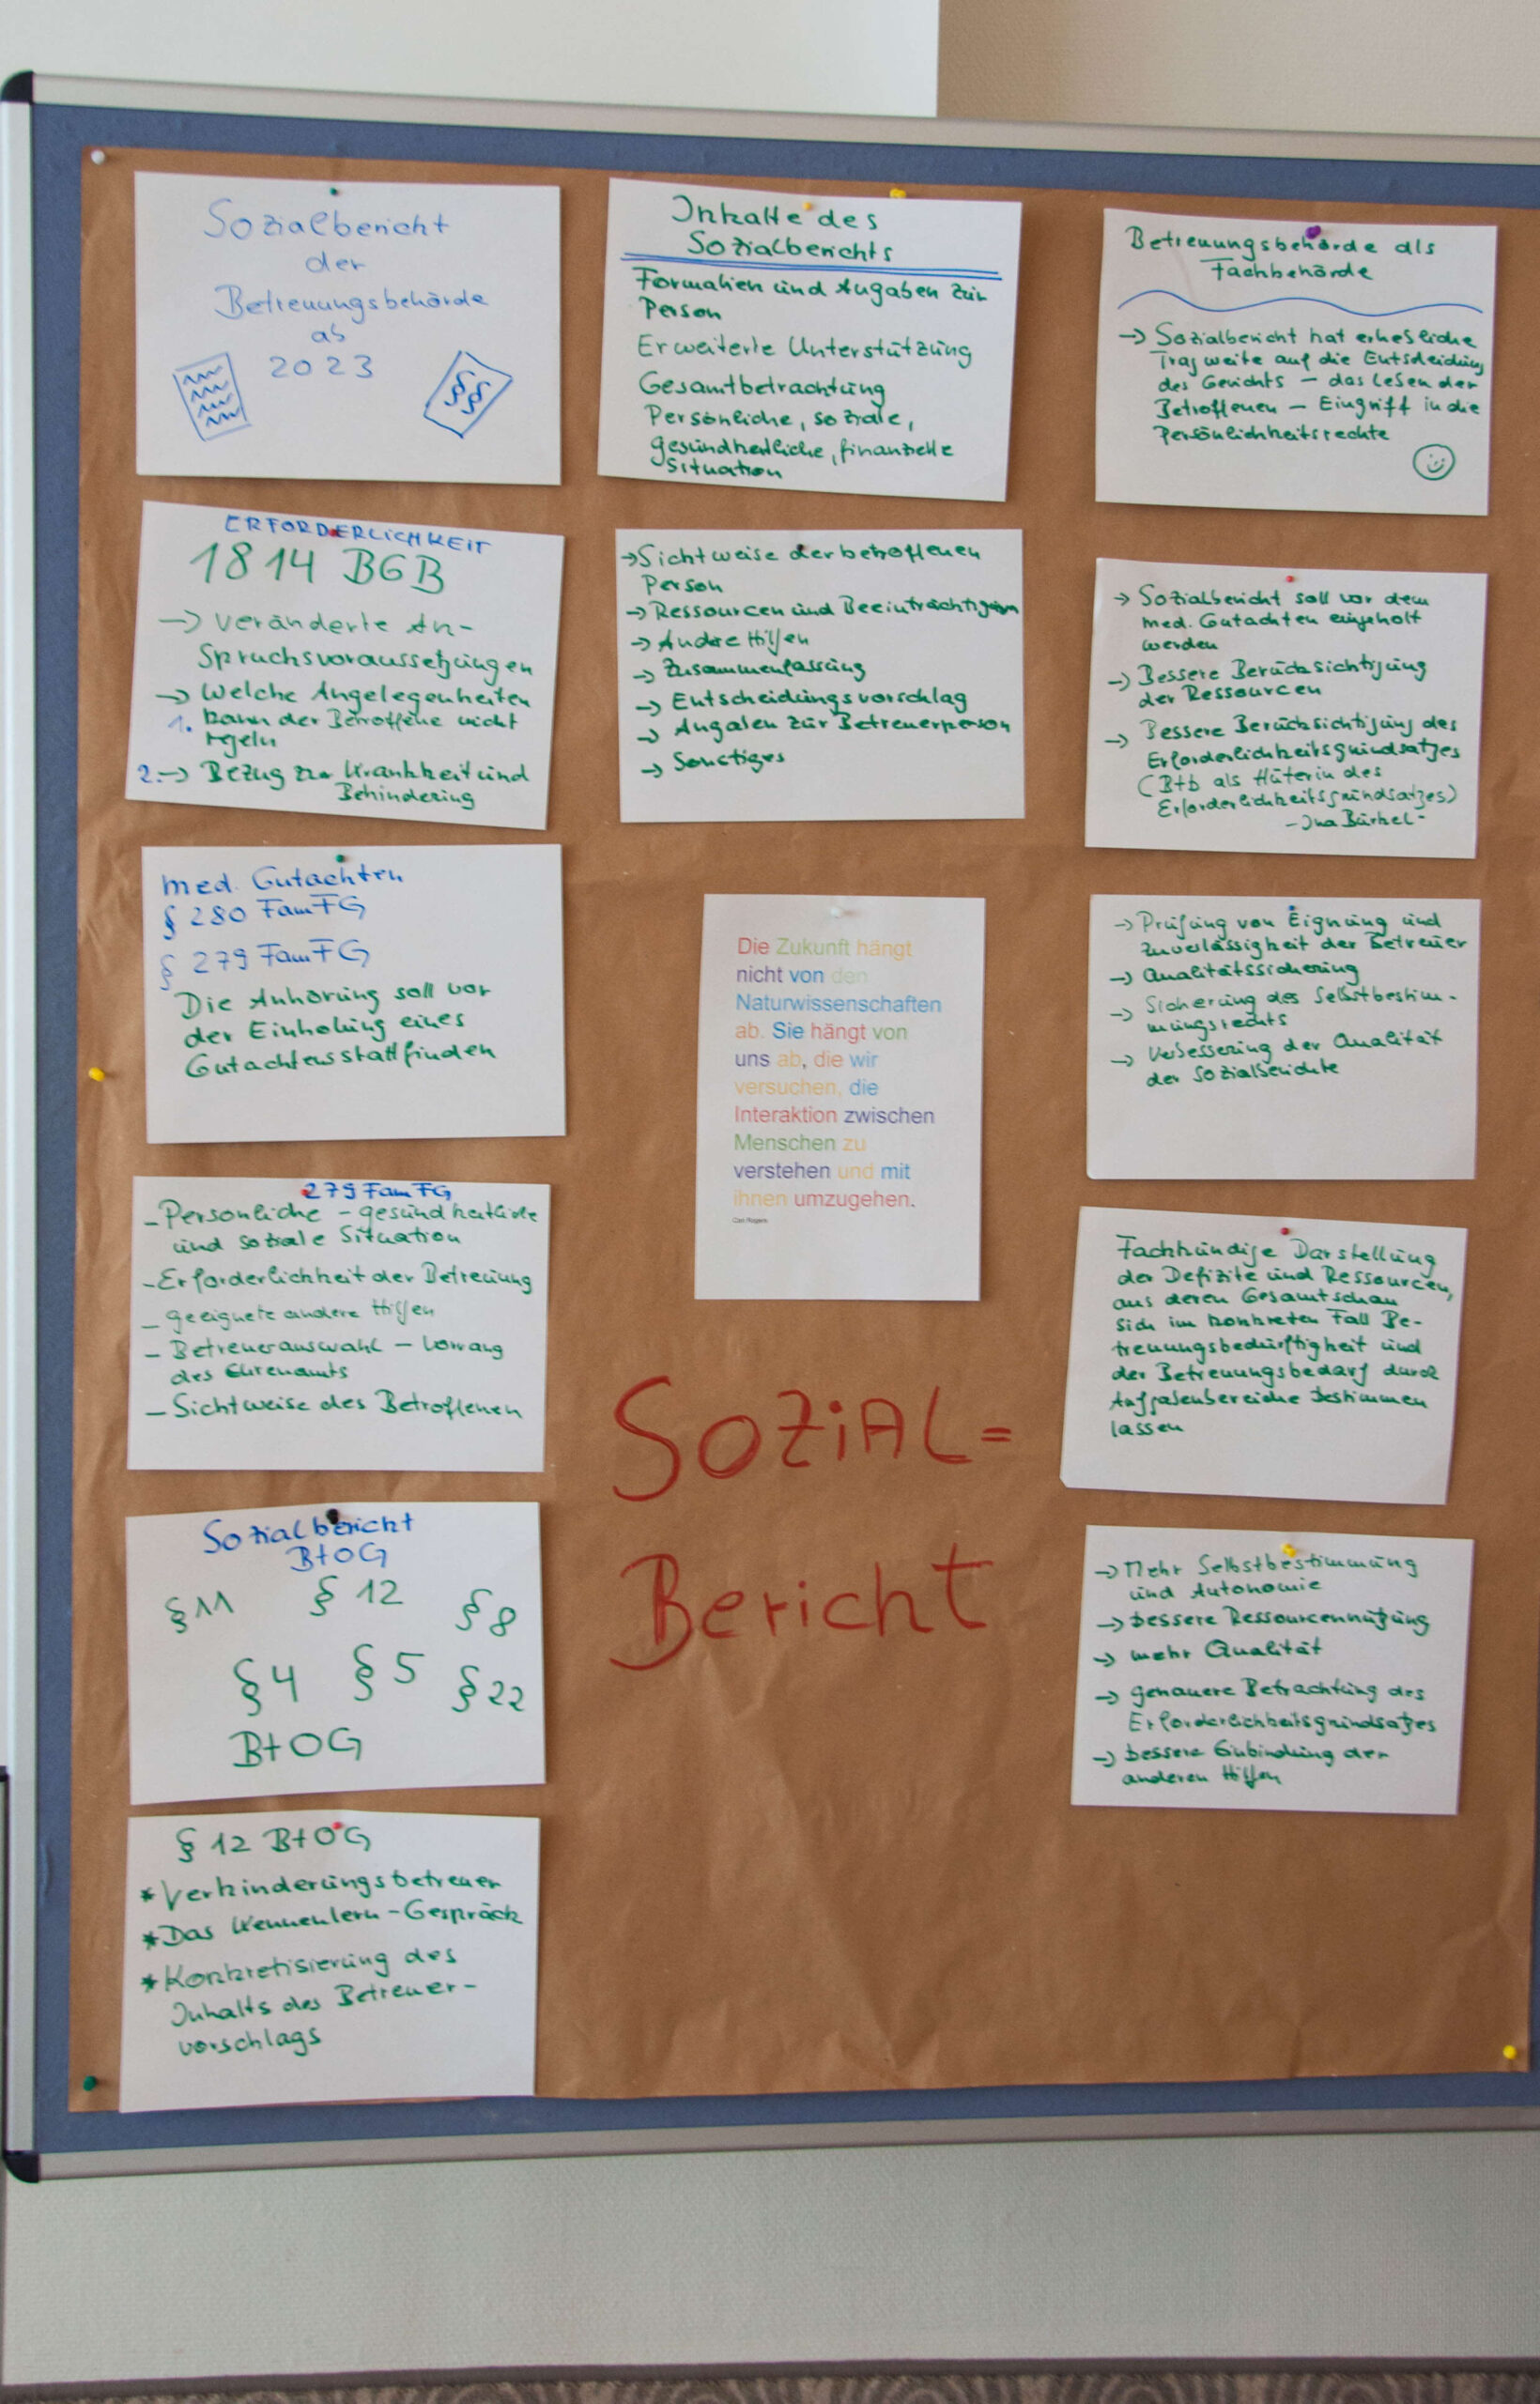 Sozialbericht
der
Betreuungsbehörde
ab
2023
§§
ERFORDERLICHKEIT
1814 BGB
→ veränderte An-
spruchsvoraussetzungen
→ Welche Angelegenheiten
1. kann der Betroffene nicht
regeln
2. → Bezug zur Krankheit und
Behinderung
med. Gutachten
§ 280 FamFG
§ 279 FamFG
Die Anhörung soll vor
der Einholung eines
Gutachtens stattfinden
279 FamFG
- Persönliche - gesundheitliche
und soziale Situation
- Erforderlichkeit der Betreuung
- geeignete andere Hilfen
- Betreuerauswahl - Vorrang
des Ehrenamts
- Sichtweise des Betroffenen
Sozialbericht
BtOG
§ 11 § 12 § 8
§ 4 § 5 § 22
BtOG
§ 12 BtOG
* Verhinderungsbetreuer
* Das Kennenlern-Gespräch
* Konkretisierung des
Inhalts des Betreuer-
vorschlags
Inhalte des
Sozialberichts
Formalien und Angaben zur
Person
Erweiterte Unterstützung
Gesamtbetrachtung
Persönliche, soziale,
gesundheitliche, finanzielle
Situation
→ Sichtweise der betroffenen
Person
→ Ressourcen und Beeinträchtigungen
→ Andere Hilfen
→ Zusammenfassung
→ Entscheidungsvorschlag
→ Angaben zur Betreuerperson
→ Sonstiges
Die Zukunft hängt
nicht von den
Naturwissenschaften
ab. Sie hängt von
uns ab, die wir
versuchen, die
Interaktion zwischen
Menschen zu
verstehen und mit
ihnen umzugehen.
Carl Rogers
SOZiAL=
Bericht
Betreuungsbehörde als
Fachbehörde
→ Sozialbericht hat erhebliche
Tragweite auf die Entscheidung
des Gerichts - das Lesen der
Betroffenen - Eingriff in die
Persönlichkeitsrechte
→ Sozialbericht soll vor dem
med. Gutachten eingeholt
werden
→ Bessere Berücksichtigung
der Ressourcen
→ Bessere Berücksichtigung des
Erforderlichkeitsgrundsatzes
(Btb als Hüterin des
Erforderlichkeitsgrundsatzes)
- Ina Bürkel -
→ Prüfung von Eignung und
Zuverlässigkeit der Betreuer
→ Qualitätssicherung
→ Sicherung des Selbstbestim-
mungsrechts
→ Verbesserung der Qualität
der Sozialberichte
Fachkundige Darstellung
der Defizite und Ressourcen,
aus deren Gesamtschau
sich im konkreten Fall Be-
treuungsbedürftigkeit und
der Betreuungsbedarf durch
Aufgabenbereiche bestimmen
lassen
→ Mehr Selbstbestimmung
und Autonomie
→ bessere Ressourcennutzung
→ mehr Qualität
→ genauere Betrachtung des
Erforderlichkeitsgrundsatzes
→ bessere Einbindung der
anderen Hilfen